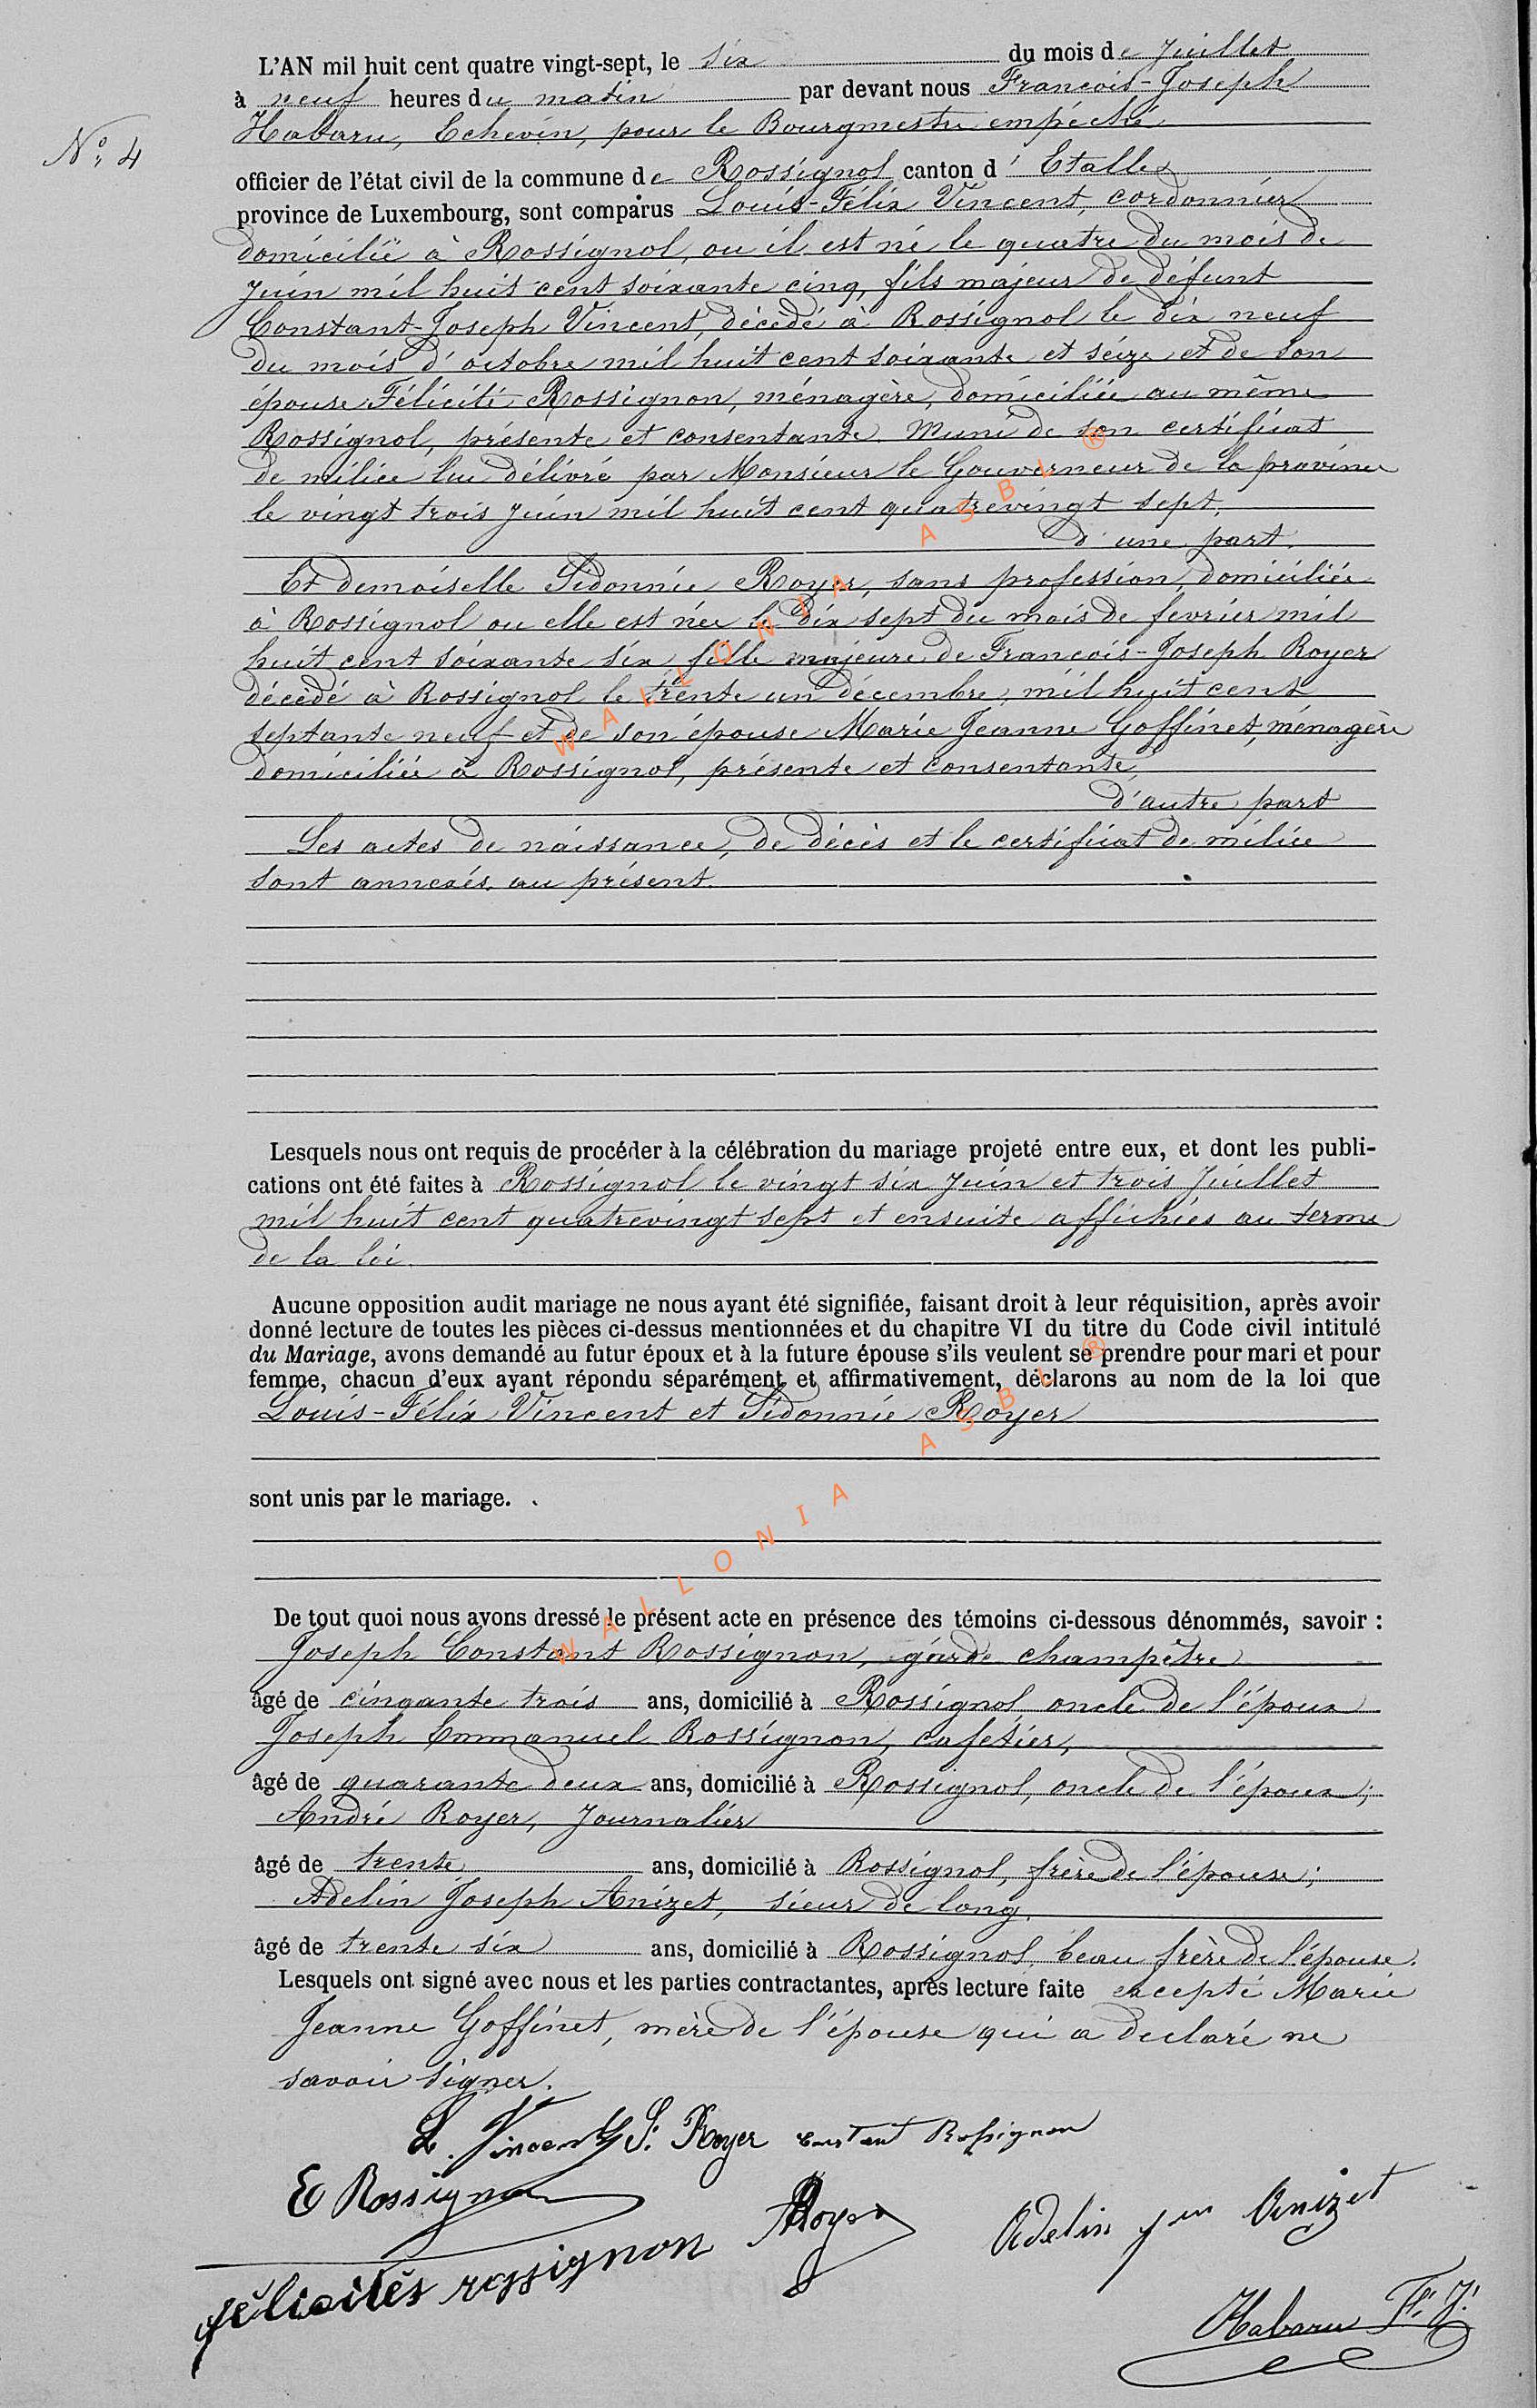 L'AN mil huit cent quatre vingt-sept, le six du mois de Juillet
à neuf heures du matin par devant nous François-Joseph
Habaru, Echevin, pour le Bourgmestre empéché
N° 4
officier de l'état civil de la commune de Rossignol canton d' Etalle
province de Luxembourg, sont comparus Louis-Félix Vincent, cordonnier
domicilié à Rossignol, ou il est né le quatre du mois de
Juin mil huit cent soixante cinq, fils majeur de défunt
Constant-Joseph Vincent, décédé à Rossignol le dix neuf
du mois d'octobre mil huit cent soixante et seize et de son
épouse Félicité Rossignon, ménagère, domiciliée au même
Rossignol, présente et consentante. Muni de son certificat
de milice lui délivré par Monsieur le Gouverneur de la province
le vingt trois Juin mil huit cent quatrevingt sept,
d'une part.
Et demoiselle Sidonnie Royer, sans profession, domiciliée
à Rossignol ou elle est née le dix sept du mois de février mil
huit cent soixante six fille majeure de François-Joseph Royer
décédé à Rossignol le trente un décembre, mil huit cent
septante neuf et de son épouse Marie Jeanne Goffinet, ménagère
domiciliée à Rossignol, présente et consentante,
d'autre part
Les actes de naissance, de décès et le certificat de milice
sont annexés au présent.
Lesquels nous ont requis de procéder à la célébration du mariage projeté entre eux, et dont les publi-
cations ont été faites à Rossignol le vingt six Juin et trois Juillet
mil huit cent quatrevingt sept et ensuite affichées au terme
de la loi.
Aucune opposition audit mariage ne nous ayant été signifiée, faisant droit à leur réquisition, après avoir
donné lecture de toutes les pièces ci-dessus mentionnées et du chapitre VI du titre du Code civil intitulé
du Mariage, avons demandé au futur époux et à la future épouse s'ils veulent se prendre pour mari et pour
femme, chacun d'eux ayant répondu séparément et affirmativement, déclarons au nom de la loi que
Louis-Félix Vincent et Sidonnie Royer
sont unis par le mariage.
De tout quoi nous avons dressé le présent acte en présence des témoins ci-dessous dénommés, savoir :
Joseph Constant Rossignon, garde champêtre
âgé de cinqante trois ans, domicilié à Rossignol oncle de l'époux
Joseph Emmanuel Rossignon, cafetier,
âgé de quarante deux ans, domicilié à Rossignol, oncle de l'époux;
André Royer, Journalier
âgé de trente ans, domicilié à Rossignol, frère de l'épouse;
Adelin Joseph Anizet, sieur de long,
âgé de trente six ans, domicilié à Rossignol, beau frère de l'épouse.
Lesquels ont signé avec nous et les parties contractantes, après lecture faite excepté Marie
Jeanne Goffinet, mère de l'épouse qui a declaré ne
savoir signer.
L. Vincent S. Royer Constant Rossignon
E Rossignon
ARoyer Adelin Anizet
félicités rossignon
Habaru F. J.
WALLONIA ASBL ®
WALLONIA ASBL ®